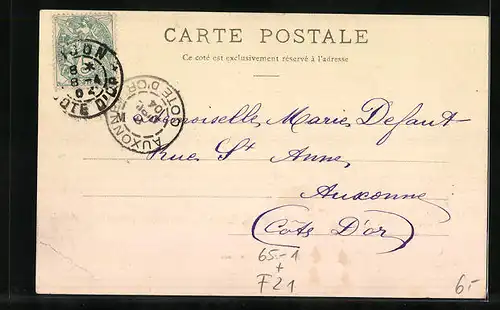 CARTE POSTALE
Ce côté est exclusivement réservé à l'adresse
DIJON
CÔTE D'OR
AUXONNE
CÔTE D'OR
Mademoiselle Marie Defaut
Rue St Anne
Auxonne
(Côte D'or)
65-1
+
F21
6.-